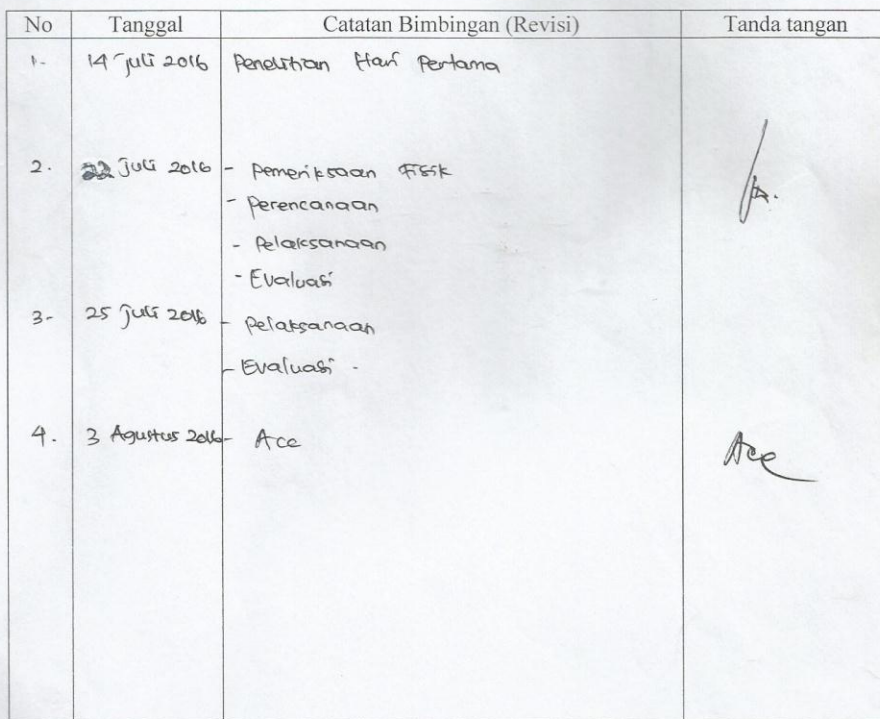 No Tanggal Catatan Bimbingan (Revisi) Tanda tangan
1. 14 Juli 2016 Penelitian Hari Pertama
2. 22 Juli 2016 - Pemeriksaan Fisik
- Perencanaan
- Pelaksanaan
- Evaluasi
3. 25 Juli 2016 - Pelaksanaan
- Evaluasi -
4. 3 Agustus 2016 - Acc Acc